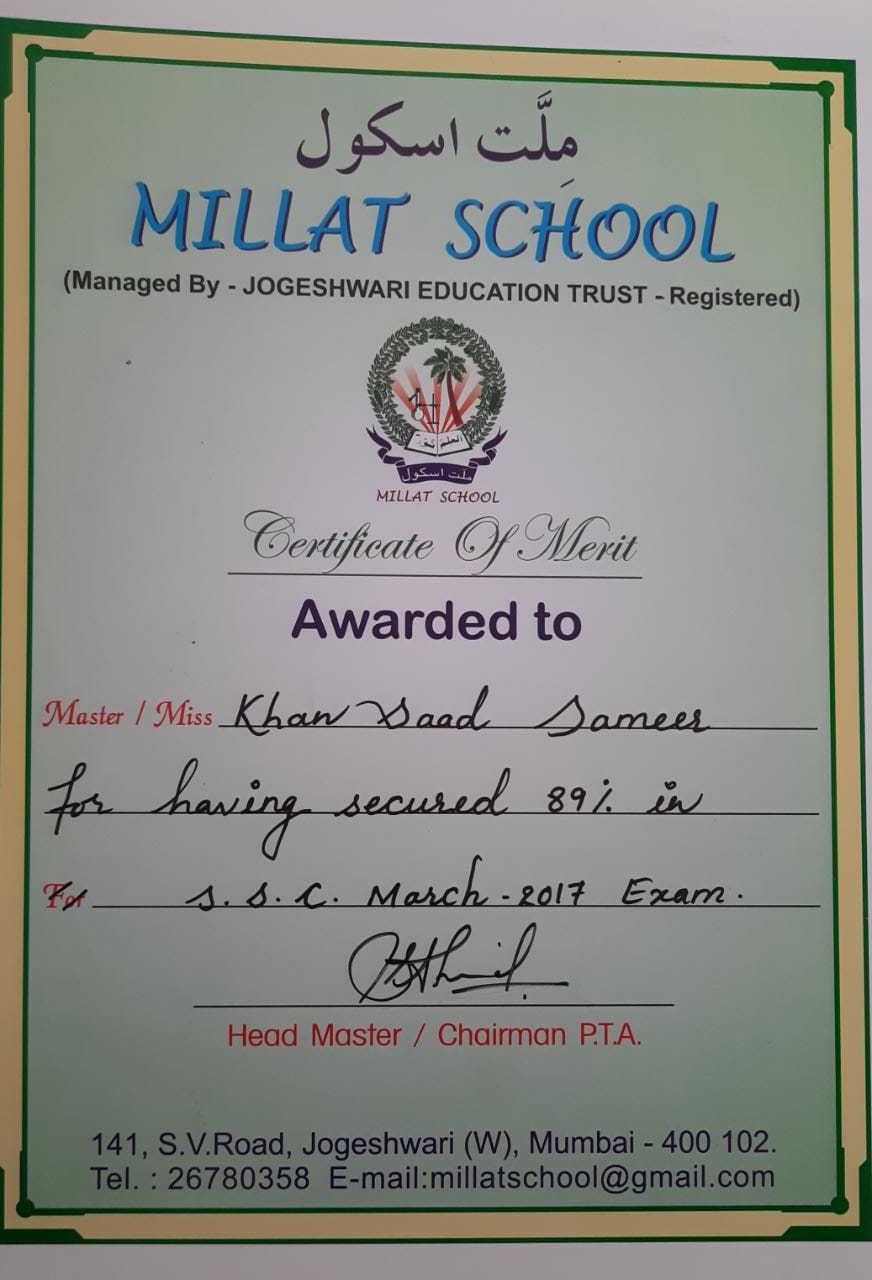 مِلَّت اسکول
MILLAT SCHOOL
(Managed By - JOGESHWARI EDUCATION TRUST - Registered)
ملت اسکول
MILLAT SCHOOL
Certificate Of Merit
Awarded to
Master / Miss Khan Saad Sameer
for having secured 89% in
For S. S. C. March - 2017 Exam.
Head Master / Chairman P.T.A.
141, S.V.Road, Jogeshwari (W), Mumbai - 400 102.
Tel. : 26780358 E-mail:millatschool@gmail.com